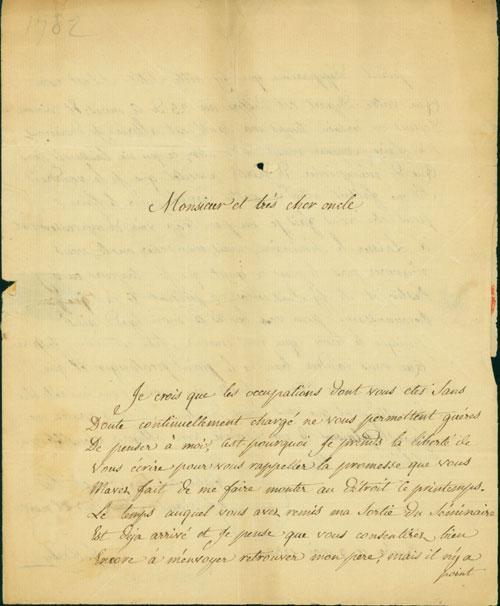 1782
Monsieur et très cher oncle
Je crois que les occupations dont vous etes Sans
Doute continuellement chargé ne vous permettent guères
De penser à moi; c'est pourquoi Je prends la liberté de
Vous écrire pour vous rappeller la promesse que vous
M'avez fait de me faire monter au Détroit le printemps.
Le temps auquel vous avez remis ma Sortie du Séminaire
Est déja arrivé et Je pense que vous consentirez bien
Encore à m'envoyer retrouver mon père; mais il n'y a
point